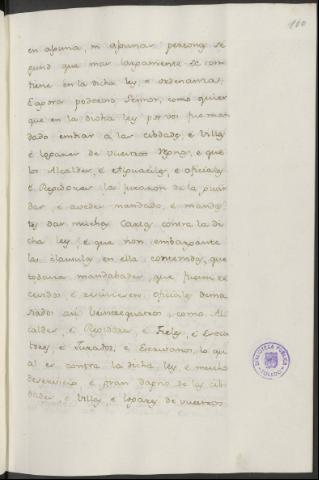 100
en alguna, ni algunas personas se
gund que mas largamente se con
tiene en la dicha ley e ordenanza.
E agora poderoso Señor, como quier
que en la dicha ley por vos fue man
dado embiar a las cibdades, e Villas
e logares de vuestros Regnos, e que
los Alcaldes, e Alguaciles, e oficiales
e Regidores la jurasen de la guar
dar, e avedes mandado, e manda
tes dar muchas Cartas contra la di
cha ley, e que non embargante
las clausulas en ella contenidas, que
todavia mandabades, que fuesen re
cevidos e resciviesen oficiales dema
siados asi Veintequatros, como Al
caldes, e Regidores, e Fieles, e Execu
tores, e Jurados, e Escrivanos, lo qu
al es contra la dicha ley, e mucho
deservicio, e gran dapño de las cib
dades, e Villas, e logares de vuestros
BIBLIOTECA PÚBLICA
TOLEDO